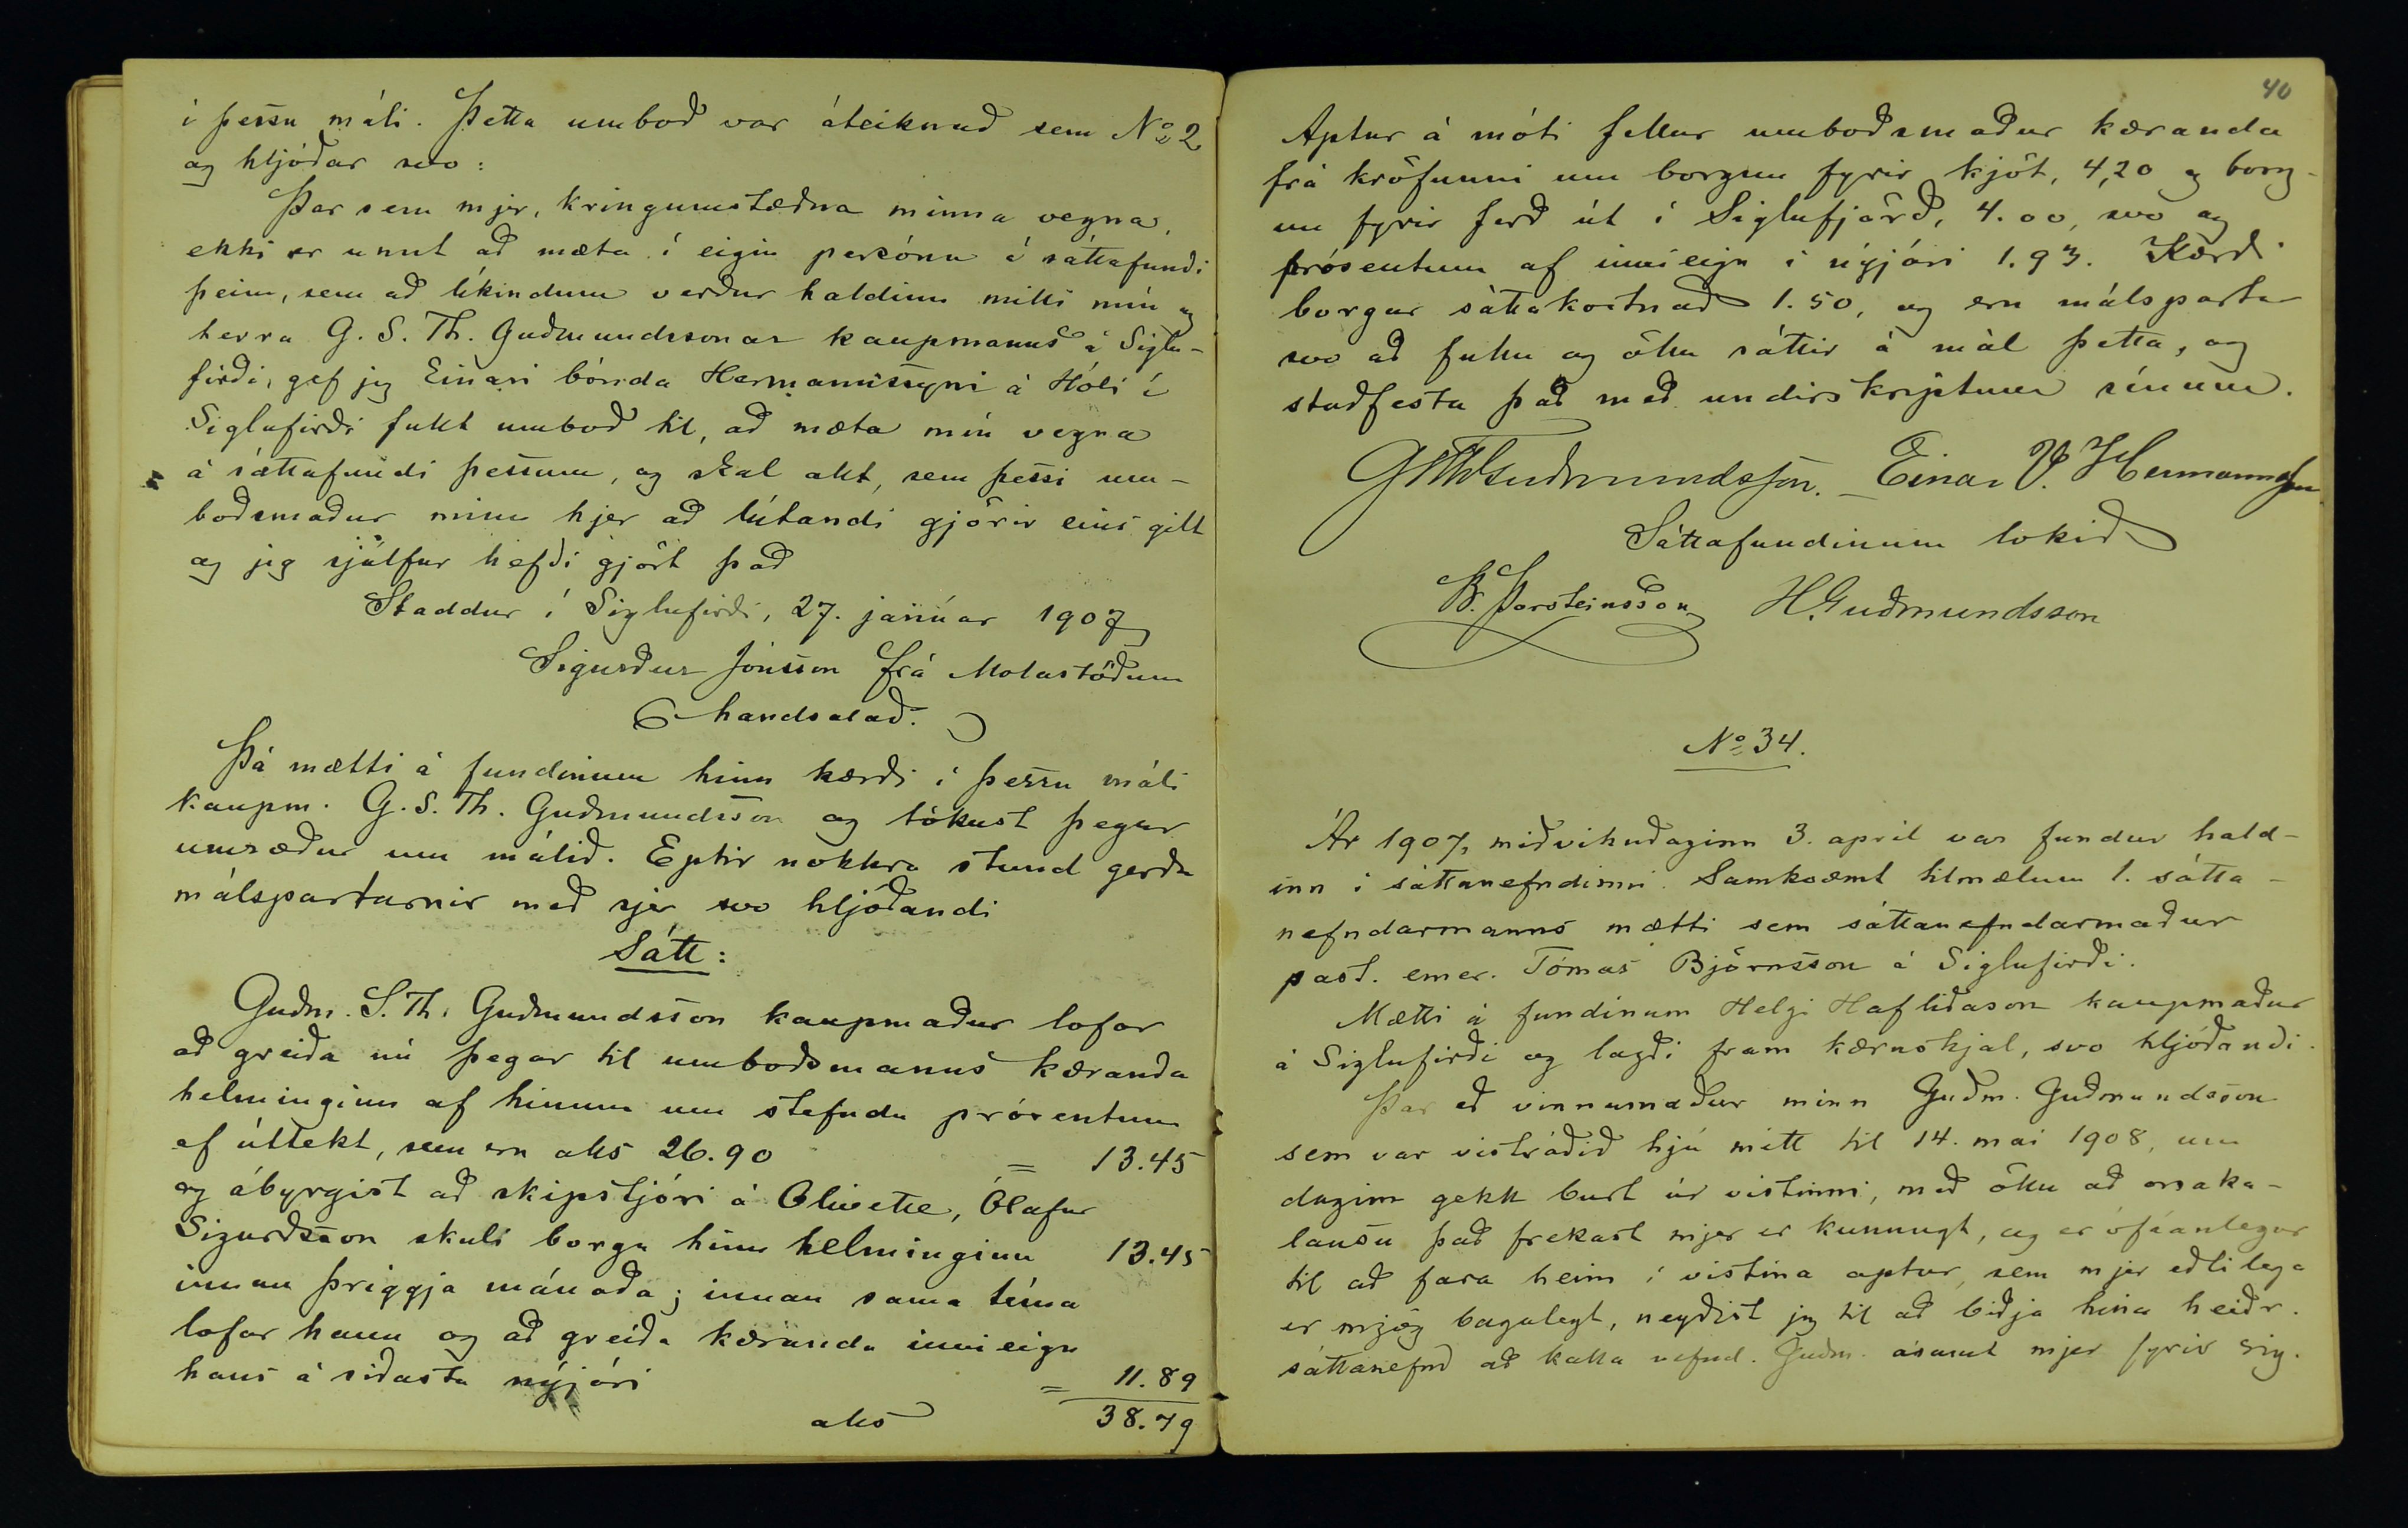 í þessu máli. Þetta umboð var áteiknað sem No 2
og hljóðar svo:
Þar sem mjer, kringumstæðna minna vegna,
ekki er unnt að mæta í eigin persónu á sáttafundi
þeim, sem að líkindum verður haldinn milli mín og
herra G. S. Th. Guðmundssonar kaupmanns á Siglu-
firði, gef jeg Einari bónda Hermannssyni á Hóli í
Siglufirði fullt umboð til, að mæta mín vegna
á sáttafundi þessum, og skal allt, sem þessi um-
boðsmaður minn hjer að lútandi gjörir eins gilt
og jeg sjálfur hefði gjört það
Staddur í Siglufirði, 27. janúar 1907
Sigurður Jónsson frá Molastöðum
handsalað.
Þá mætti á fundinum hinn kærði í þessu máli
kaupm. G. S. Th. Guðmundsson og tókust þegar
umræður um málið. Eptir nokkra stund gerðu
málspartarnir með sjer svo hljóðandi
Sátt:
Guðm. S. Th. Guðmundsson kaupmaður lofar
að greiða nú þegar til umboðsmanns kæranda
helminginn af hinum um stefndu prósentum
af úttekt, sem eru alls 26.90 = 13.45
og ábyrgist að skipstjóri á Olivette, Ólafur
Sigurðsson skuli borga hinn helminginn 13.45
innan þriggja mánaða; innan sama tíma
lofar hann og að greiða kæranda inneign
hans á síðasta nýjári = 11.89
alls 38.79
40
Aptur á móti fellur umboðsmaður kæranda
frá kröfunni um borgun fyrir kjöt, 4,20 og borg-
un fyrir ferð út í Siglufjörð, 4.00, svo og
prósentum af inneign í nýjári 1.93. Kærði
borgar sáttakostnað 1.50, og eru málspartar
svo að fullu og öllu sáttir á mál þetta, og
staðfesta það með undirskriptum sínum.
GSThGuðmundsson. Einar V. Hermannsson
Sáttafundinum lokið
B. Þorsteinsson H. Guðmundsson
No 34.
Ár 1907, miðvikudaginn 3. apríl var fundur hald-
inn í sáttanefndinni. Samkvæmt tilmælum 1. sátta-
nefndarmanns mætti sem sáttanefndarmaður
past. emer. Tómas Björnsson á Siglufirði.
Mætti á fundinum Helgi Hafliðason kaupmaður
á Siglufirði og lagði fram kæruskjal, svo hljóðandi.
Þar eð vinnumaður minn Guðm. Guðmundsson
sem var vistráðið hjú mitt til 14. maí 1908, um
daginn gekk burt úr vistinni, með öllu að orsaka-
lausu það frekast mjer er kunnugt, og er ófáanlegur
til að fara heim í vistina aptur, sem mjer eðlilega
er mjög bagalegt, neyðist jeg til að biðja hina heiðr.
sáttanefnd að kalla nefnd. Guðm. ásamt mjer fyrir sig.